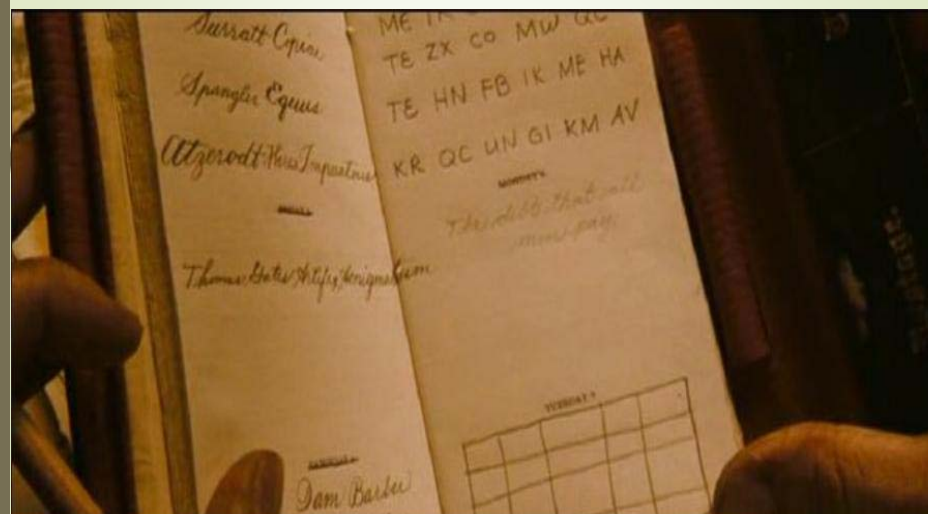 Surratt Copine
Spangler Equus
Atzerodt
Thomas Gates Artifex Aenigmatum
Sam Barber
ME
TE ZX CO MW QC
TE HN FB IK ME HA
KR QC UN GI KM AV
MONDAY
The debt that all
men pay
TUESDAY